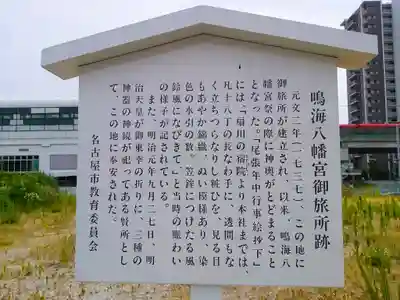 鳴海八幡宮御旅所跡
元文二年(一七三七)、この地に
御旅所が建立され、以来、鳴海八
幡宮祭の際に神輿がとどまること
となった。『尾張年中行事絵抄下』
には「扇川の宿院より本社までは、
凡十八丁の長なわ手に、透間もな
く立ちつらなりし粧ひを、見る目
もあやか錦繍、ぬい模様あり、染
色の水引の数。笠鉾につけたる風
鈴風になびきて」と当時の賑わい
の様子が記されている。
また、明治元年九月二七日、明
治天皇が御東幸の折りに、三種の
神器の神鏡が祀ってある賢所とし
て、この地に奉安された。
名古屋市教育委員会